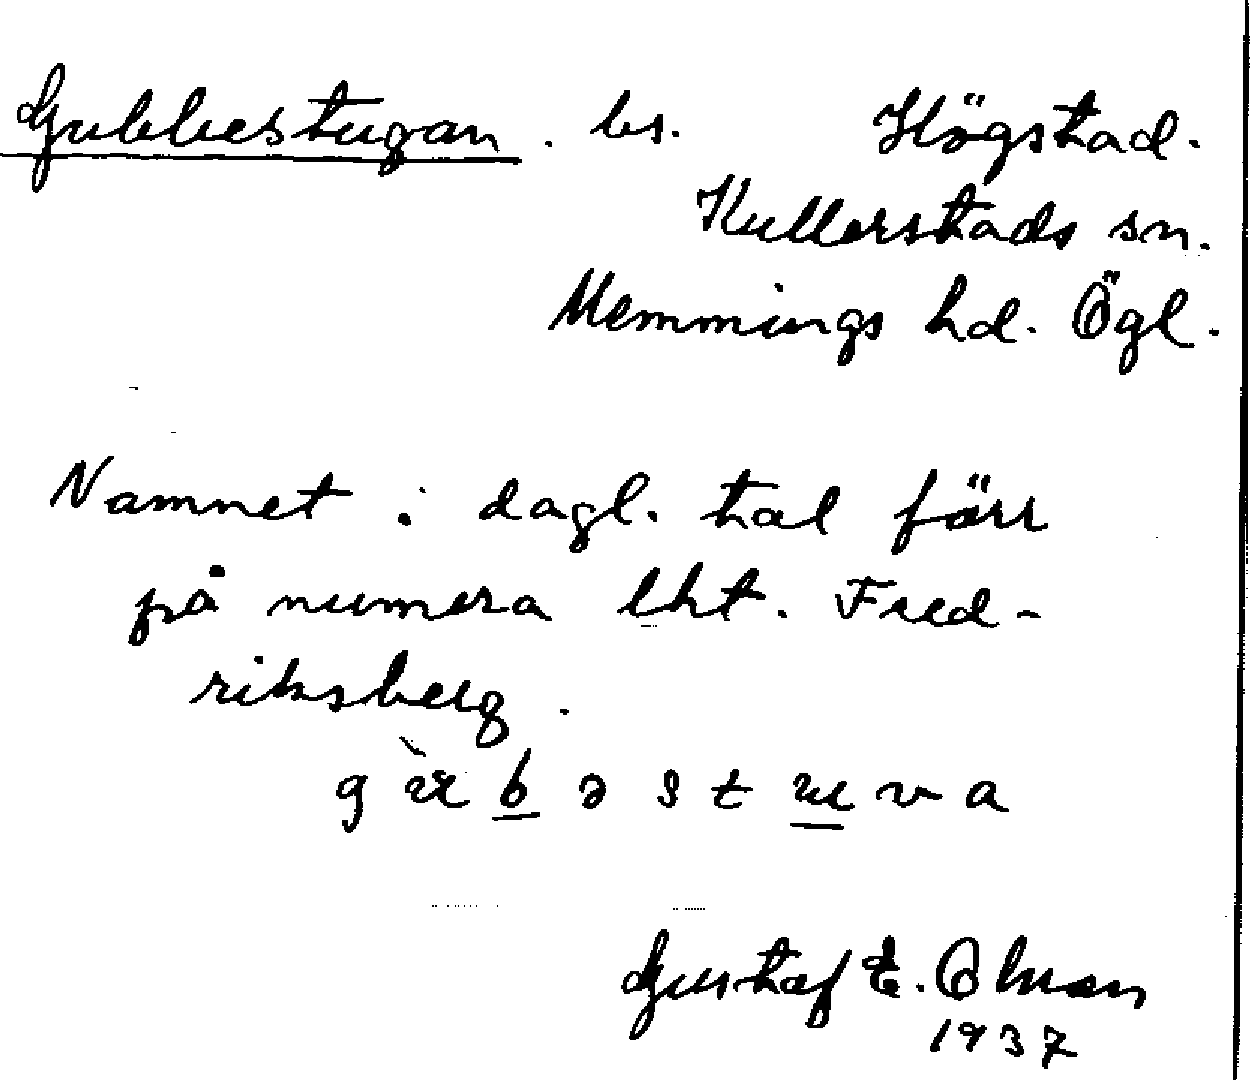 Gubbestugan. bs. Högstad.
Kullerstads sn.
Memmings hd. Ögl.
Namnet i dagl. tal förr
på numera lht. Fred-
riksberg.
Gustaf E.
1937